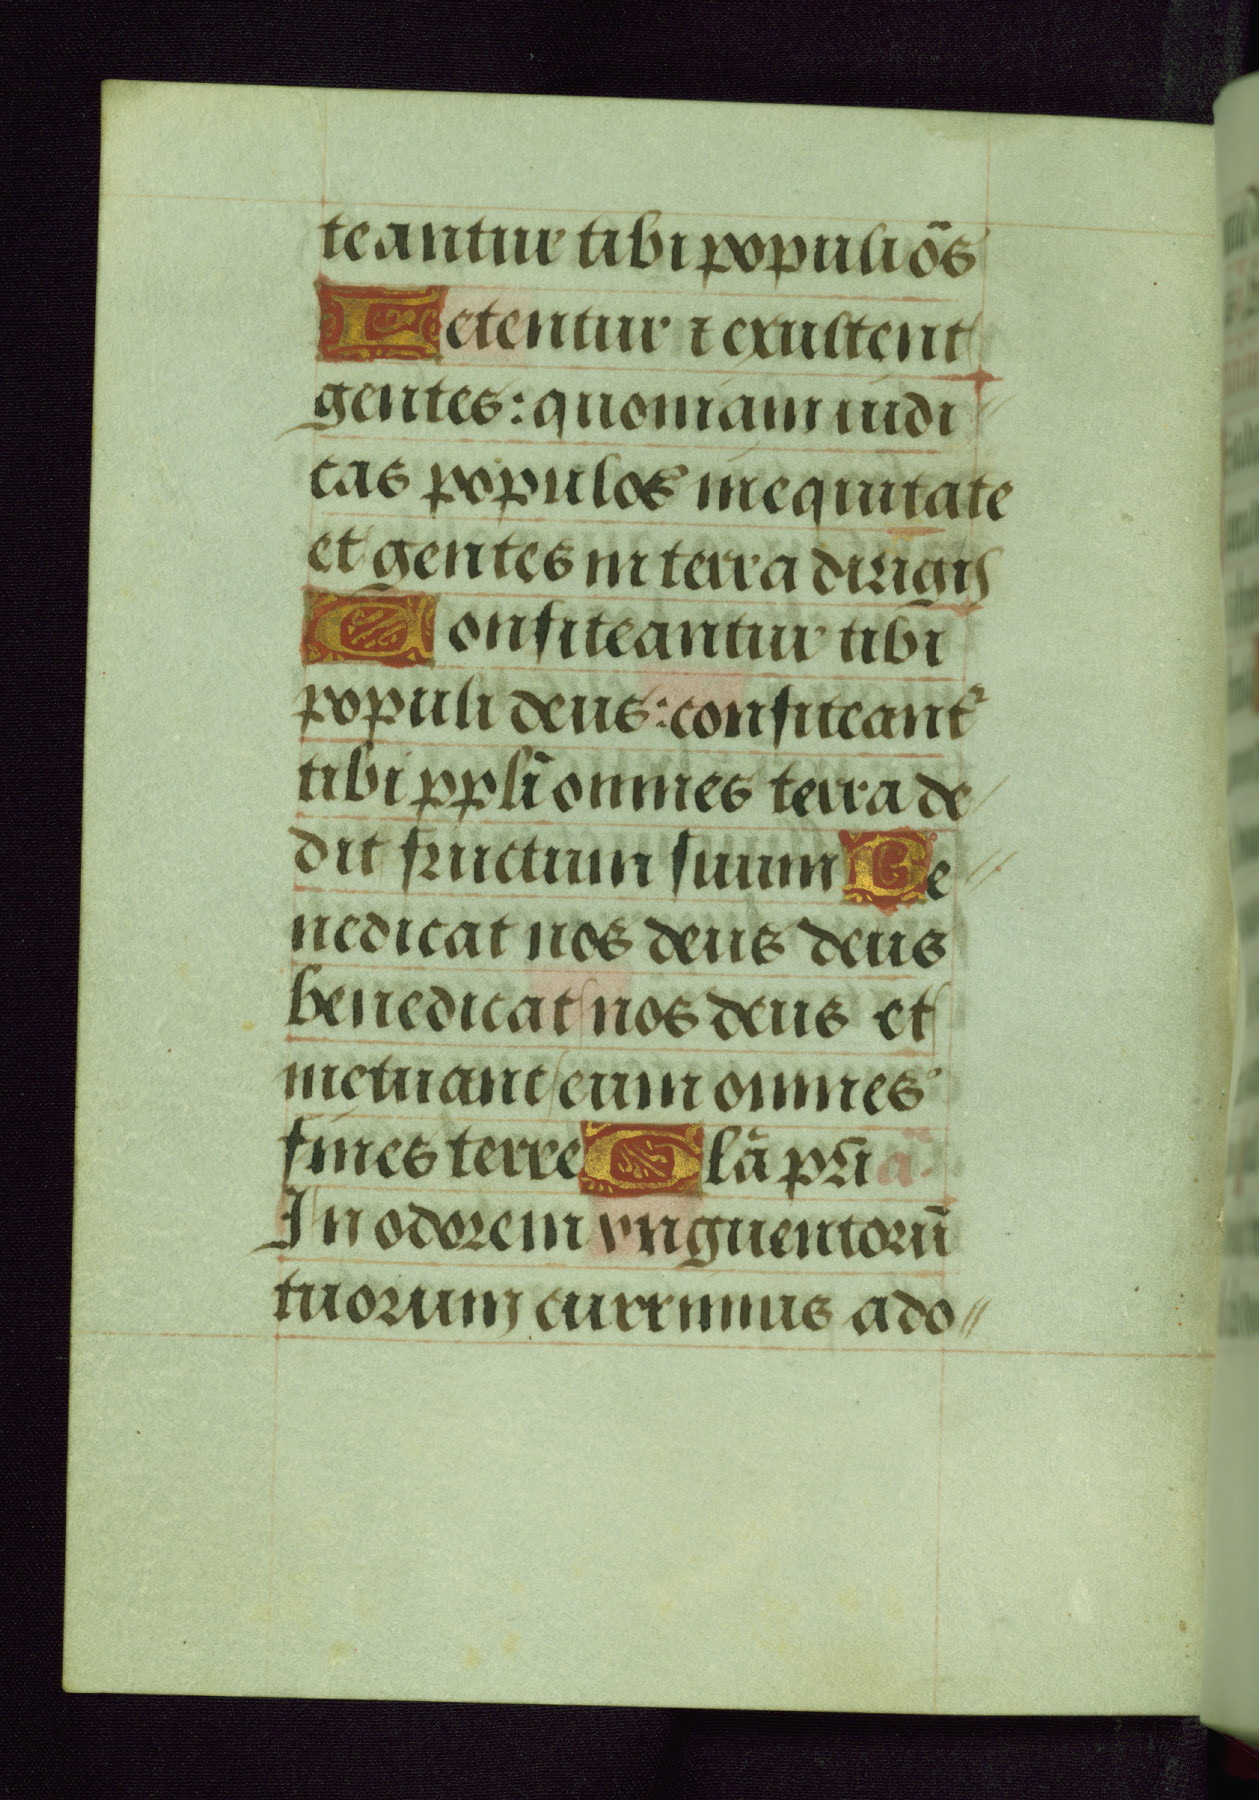 teantur tibi populi õs
Letentur ⁊ exultent
gentes: quoniam iudi
cas populos in equitate
et gentes in terra dirigis
Confiteantur tibi
populi deus: confiteant᷑
tibi ppl̃i omnes terra de
dit fructum suum Be
nedicat nos deus deus
benedicat nos deus et
metuant eum omnes
fines terre Glã pr̃i ã.
In odorem vnguentorũ
tuorum currimus ado